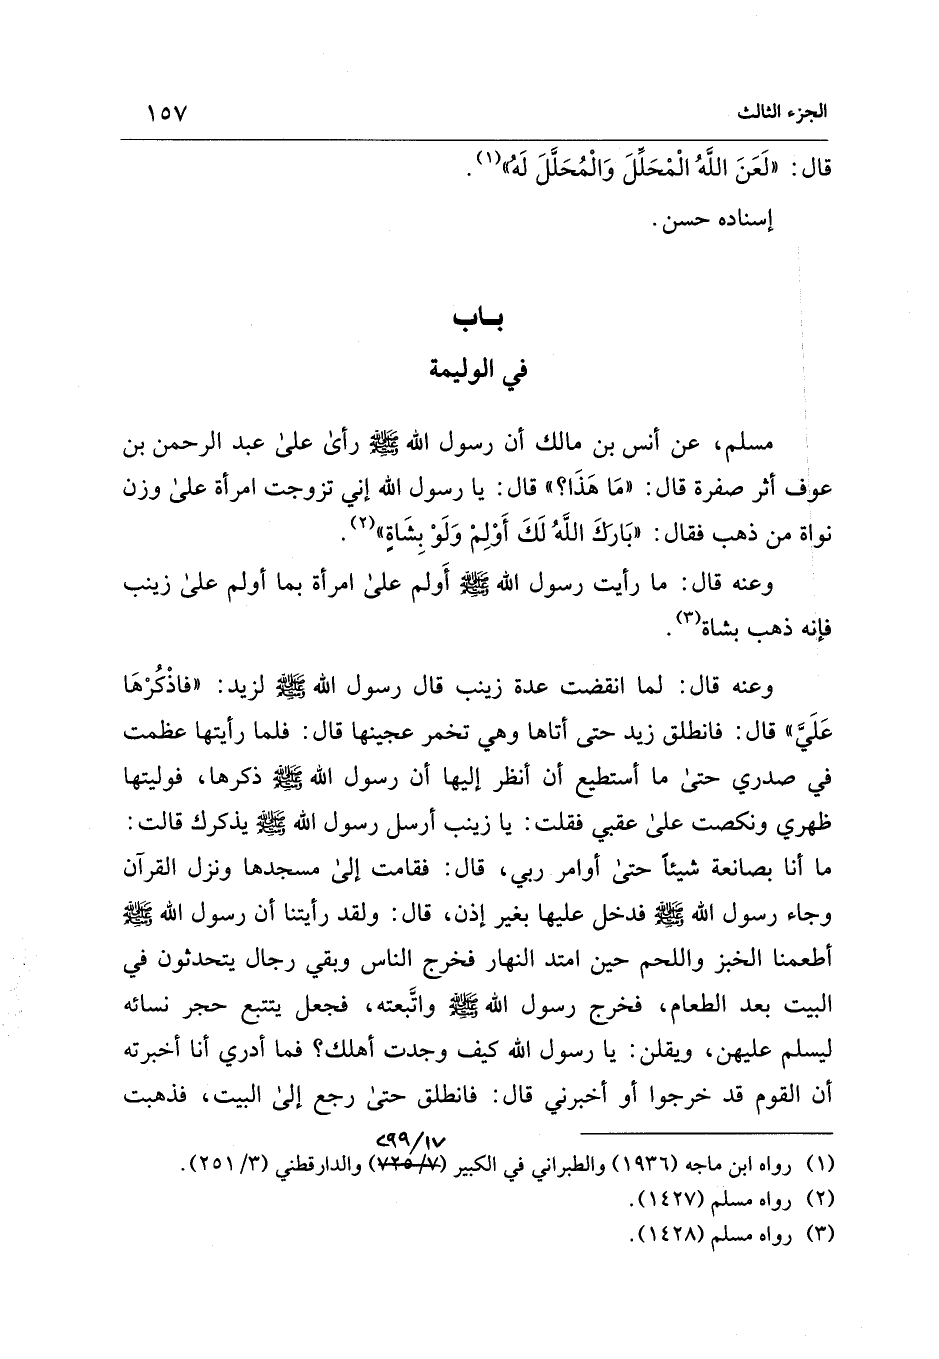 الجزء الثالث ١٥٧
قال: «لَعَنَ اللَّهُ الْمُحَلِّلَ وَالْمُحَلَّلَ لَهُ»(١).
إسناده حسن.
بـاب
في الوليمة
مسلم، عن أنس بن مالك أن رسول الله ﷺ رأىٰ علىٰ عبد الرحمن بن
عوف أثر صفرة قال: «مَا هَذَا؟» قال: يا رسول الله إني تزوجت امرأة علىٰ وزن
نواة من ذهب فقال: «بَارَكَ اللَّهُ لَكَ أَوْلِمْ وَلَوْ بِشَاةٍ»(٢).
وعنه قال: ما رأيت رسول الله ﷺ أَولم علىٰ امرأة بما أولم علىٰ زينب
فإنه ذهب بشاة(٣).
وعنه قال: لما انقضت عدة زينب قال رسول الله ﷺ لزيد: «فاذْكُرْهَا
عَلَيَّ» قال: فانطلق زيد حتى أتاها وهي تخمر عجينها قال: فلما رأيتها عظمت
في صدري حتىٰ ما أستطيع أن أنظر إليها أن رسول الله ﷺ ذكرها، فوليتها
ظهري ونكصت علىٰ عقبي فقلت: يا زينب أرسل رسول الله ﷺ يذكرك قالت:
ما أنا بصانعة شيئاً حتىٰ أوامر ربي، قال: فقامت إلىٰ مسجدها ونزل القرآن
وجاء رسول الله ﷺ فدخل عليها بغير إذن، قال: ولقد رأيتنا أن رسول الله ﷺ
أطعمنا الخبز واللحم حين امتد النهار فخرج الناس وبقي رجال يتحدثون في
البيت بعد الطعام، فخرج رسول الله ﷺ واتَّبعته، فجعل يتتبع حجر نسائه
ليسلم عليهن، ويقلن: يا رسول الله كيف وجدت أهلك؟ فما أدري أنا أخبرته
أن القوم قد خرجوا أو أخبرني قال: فانطلق حتىٰ رجع إلىٰ البيت، فذهبت
٢٩٩/١٧
(١) رواه ابن ماجه (١٩٣٦) والطبراني في الكبير (٧٢٥/٧) والدارقطني (٣/ ٢٥١).
(٢) رواه مسلم (١٤٢٧).
(٣) رواه مسلم (١٤٢٨).